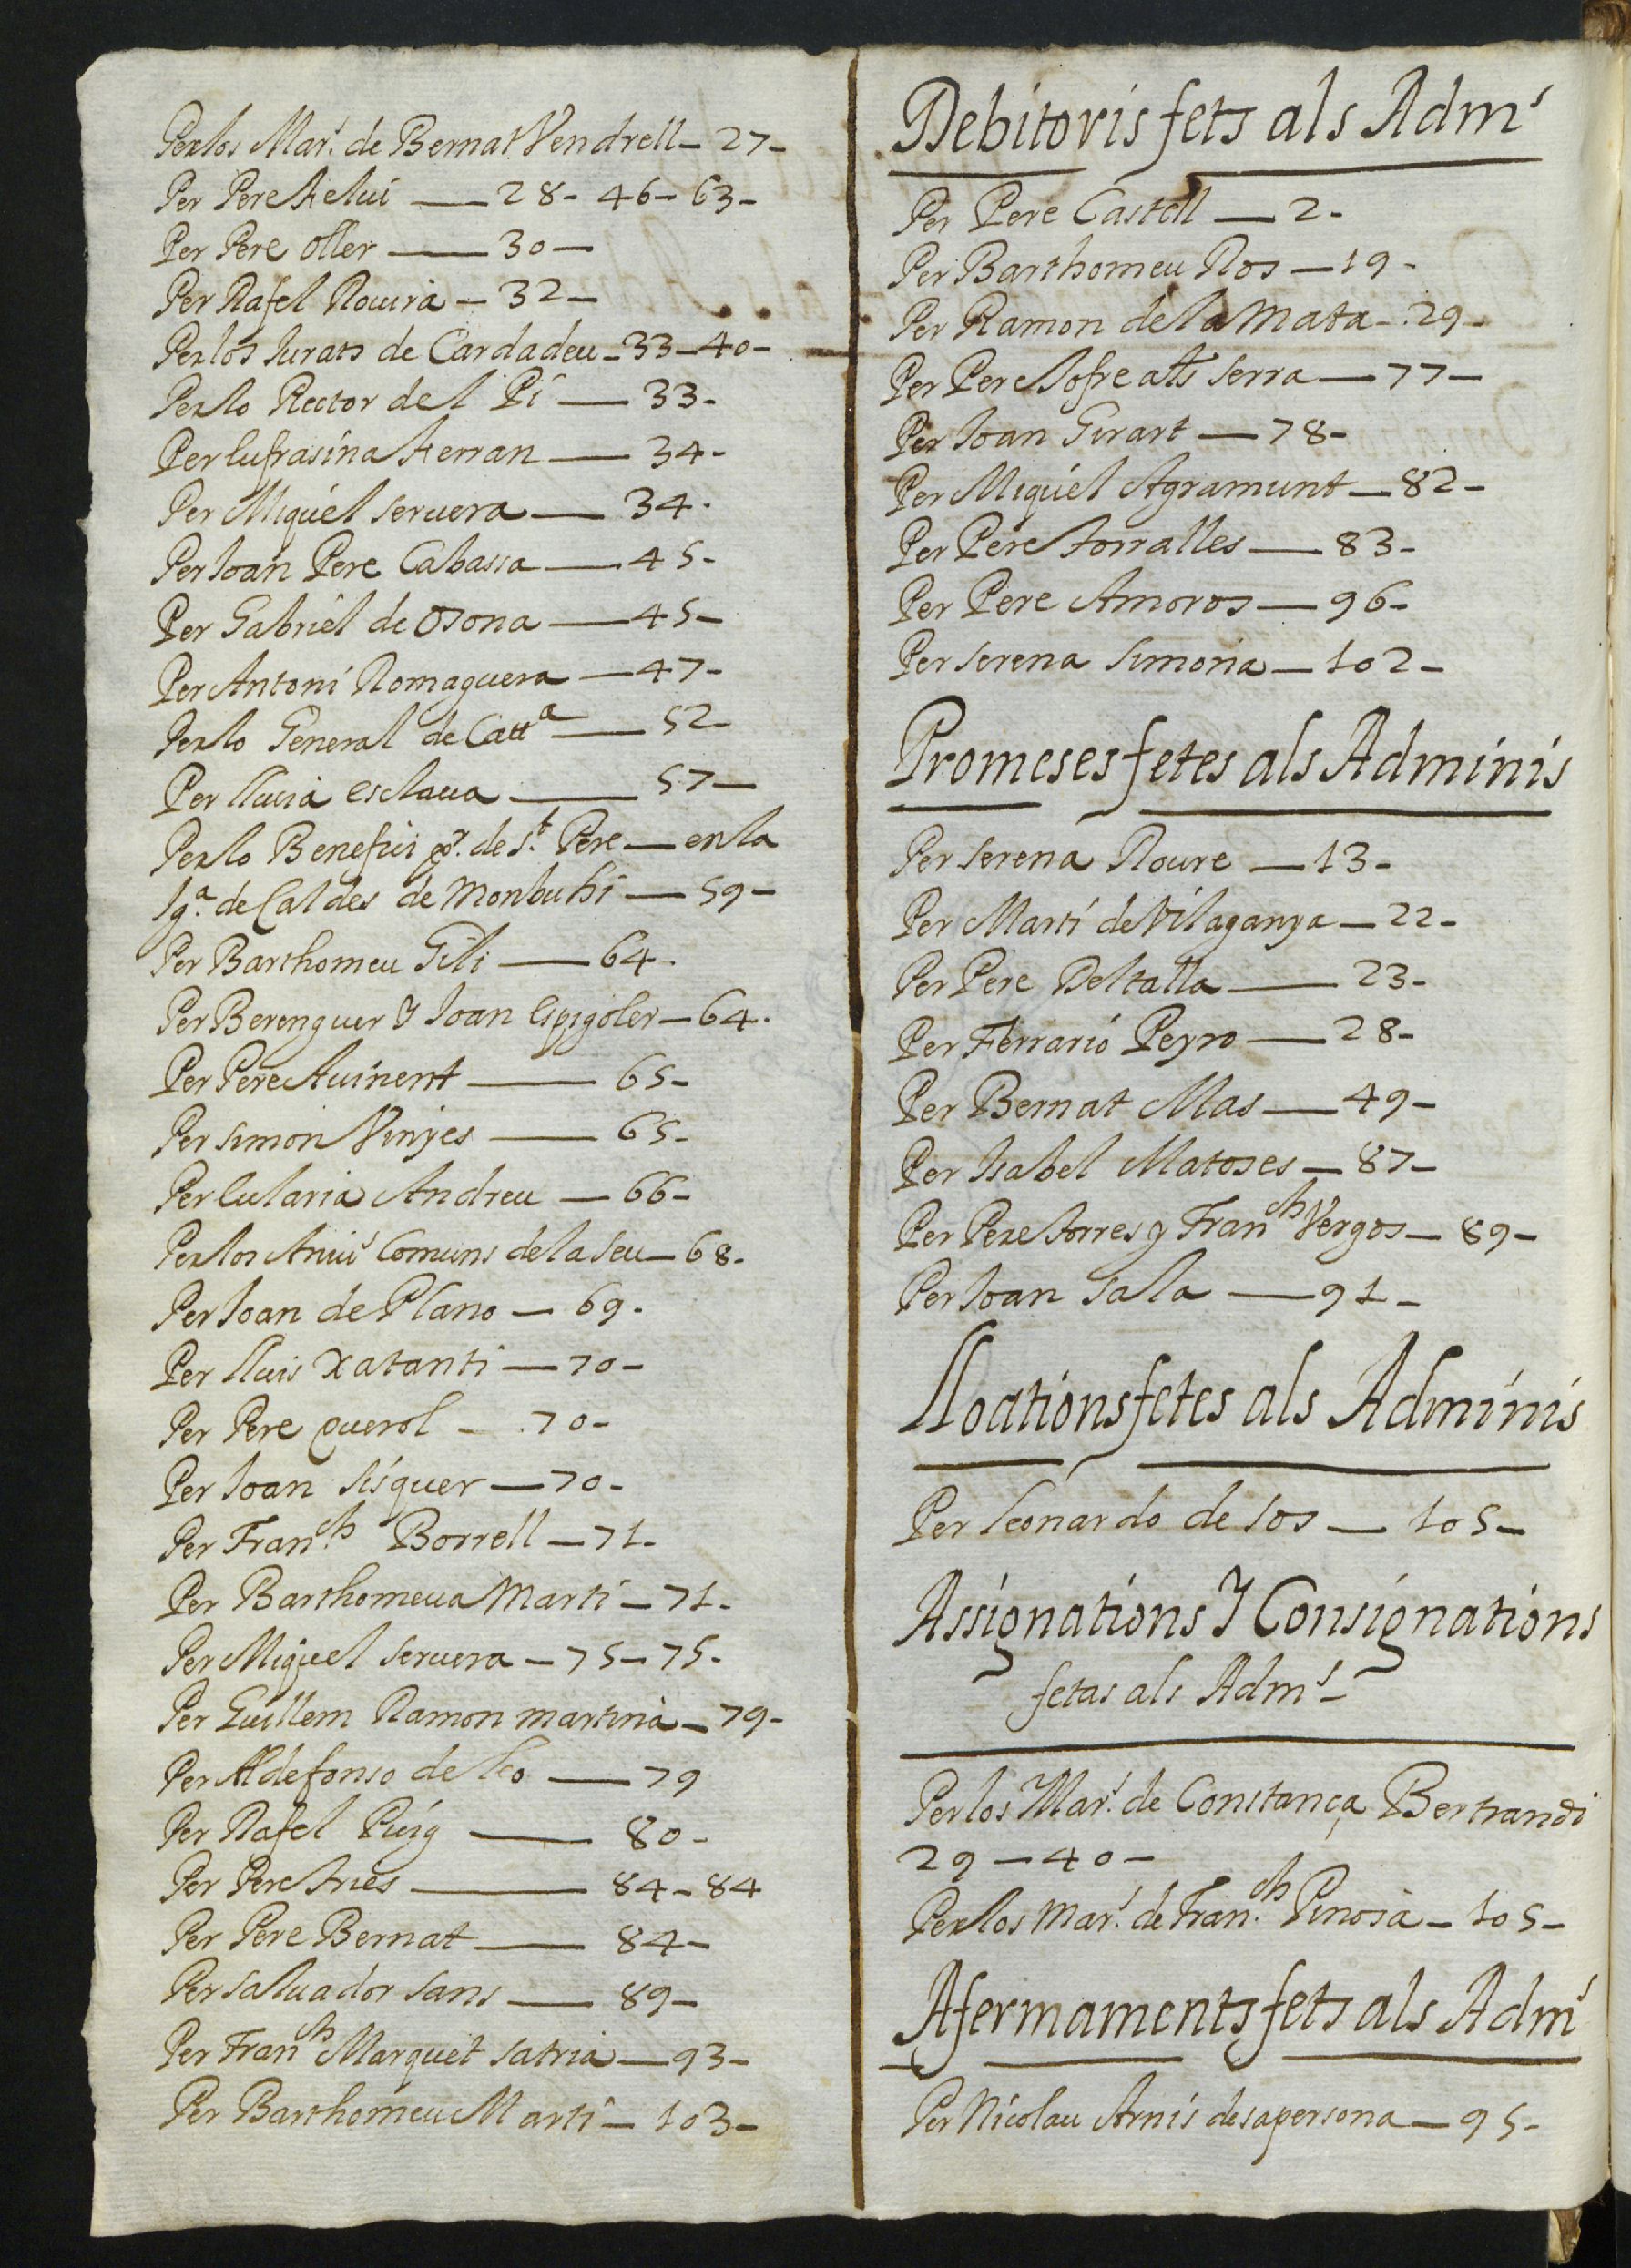 Per los Mar.ˢ de Bernat Vendrell – 27 –
Per Pere Feliu — 28 – 46 – 63 –
Per Pere Oller — 30 —
Per Rafel Rouira – 32 –
Per los Jurats de Cardadeu – 33 – 40 –
Per lo Rector del Pi — 33 –
Per Eufrasina Ferran — 34 –
Per Miquel Seruera — 34 ·
Per Joan Pere Cabassa — 45 –
Per Gabriel de Osona — 45 –
Per Antoni Romaguera — 47 –
Per lo General de Cattᵃ — 52 –
Per lluçia esclaua — 57 —
Per lo Benefici de S.ᵗ Pere — en la
Ig.ᵃ de Caldes de Monbuhi — 59 –
Per Barthomeu Gili — 64 ·
Per Berenguer y Joan Espigoler – 64 ·
Per Pere Auinent — 65 –
Per Simon Vinyes — 65 –
Per Eularia Andreu — 66 –
Per los Aniuˢ Comuns de la Seu – 68 ·
Per Joan de Plano – 69 ·
Per lluis Xatanti — 70 –
Per Pere querol – 70 –
Per Joan Sisquer — 70 –
Per Fran.ᶜʰ Borrell – 71 –
Per Barthomeua Marti – 71 –
Per Miquel Seruera – 75 – 75 ·
Per Guillem Ramon martina – 79 –
Per Aldefonso de Leo — 79
Per Rafel Puig — 80 –
Per Pere Aries — 84 – 84
Per Pere Bernat — 84 –
Per Saluador Sans — 89 –
Per Franᶜʰ Marquet Satria — 93 –
Per Barthomeu Marti – 103 –
Debitoris fets als Admˢ
Per Pere Castell — 2 –
Per Barthomeu Ros — 19 –
Per Ramon de la Mata – 29 –
Per Pere Jofre alts Serra — 77 —
Per Joan Girart — 78 –
Per Miquel Agramunt — 82 –
Per Pere Torralles — 83 –
Per Pere Amoros — 96 –
Per Serena Simona — 102 –
Promeses fetes als Adminis
Per Serena Roure — 13 –
Per Marti de Vilaganya – 22 –
Per Pere Deltalla — 23 –
Per Ferrario Peyro — 28 –
Per Bernat Mas — 49 –
Per Isabel Matoses – 87 –
Per Pere Torres y Franᶜʰ Vergos – 89 –
Per Joan Sala — 91 –
Lloations fetes als Adminis
Per Leonardo de Sos — 105 –
Assignations Y Consignations
fetas als Admˢ –
Per los Mar.ˢ de Constança Bertrandi
29 – 40 –
Per los Mar.ˢ de Fran.ᶜʰ Pinosa – 105 –
Afermaments fets als Admˢ
Per Nicolau Arnis de sa persona – 95 –